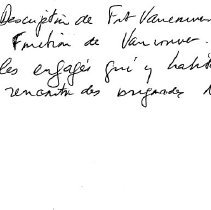 Description de Fort Vancouver
Fonction de Vancouver.
les engagés qui y habit
rencontre des brigades